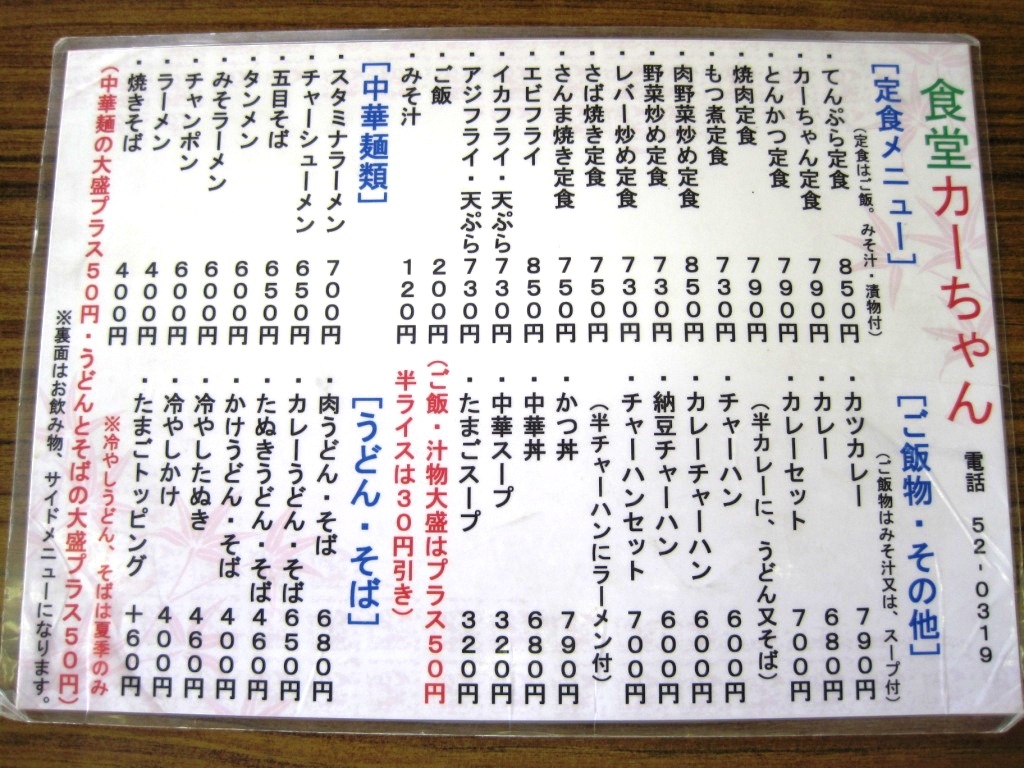 食堂カーちゃん
電話 52-0319
[定食メニュー]
(定食はご飯。みそ汁・漬物付)
・てんぷら定食 850円
・カーちゃん定食 790円
・とんかつ定食 790円
・焼肉定食 790円
・もつ煮定食 730円
・肉野菜炒め定食 850円
・野菜炒め定食 730円
・レバー炒め定食 730円
・さば焼き定食 750円
・さんま焼き定食 750円
・エビフライ 850円
・イカフライ・天ぷら 730円
・アジフライ・天ぷら 730円
・ご飯 200円
・みそ汁 120円
[中華麺類]
・スタミナラーメン 700円
・チャーシューメン 650円
・五目そば 650円
・タンメン 600円
・みそラーメン 600円
・チャンポン 600円
・ラーメン 400円
・焼きそば 400円
[ご飯物・その他]
(ご飯物はみそ汁又は、スープ付)
・カツカレー 790円
・カレー 680円
・カレーセット 700円
(半カレーに、うどん又そば)
・チャーハン 600円
・カレーチャーハン 600円
・納豆チャーハン 600円
・チャーハンセット 700円
(半チャーハンにラーメン付)
・かつ丼 790円
・中華丼 680円
・中華スープ 320円
・たまごスープ 320円
(ご飯・汁物大盛はプラス50円
半ライスは30円引き)
[うどん・そば]
・肉うどん・そば 680円
・カレーうどん・そば 650円
・たぬきうどん・そば 460円
・かけうどん・そば 400円
・冷やしたぬき 460円
・冷やしかけ 400円
・たまごトッピング +60円
※冷やしうどん、そばは夏季のみ
(中華麺の大盛プラス50円・うどんとそばの大盛プラス50円)
※裏面はお飲み物、サイドメニューになります。